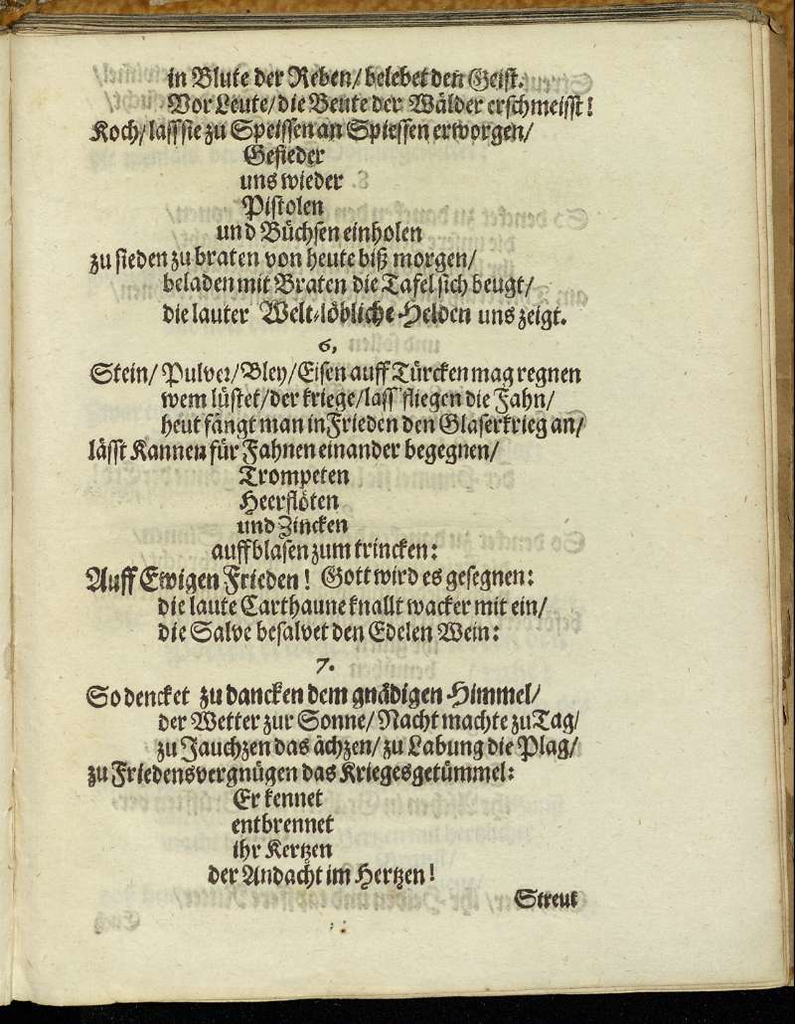 in Blute der Reben/ belebet den Geist.
Vor Leute/ die Beute der Wälder erschmeisst!
Koch/ lass sie zu Speissen an Spiessen erworgen/
Gefieder
uns wieder
Pistolen
und Büchsen einholen
zu sieden zu braten von heute biß morgen/
beladen mit Braten die Tafel sich beugt/
die lauter Welt-löbliche-Helden uns zeigt.
6.
Stein/ Pulver/ Bley/ Eisen auff Türcken mag regnen
wem lüstet/ der kriege/ lass fliegen die Fahn/
heut fängt man in Frieden den Glaserkrieg an/
lässt Kannen für Fahnen einander begegnen/
Trompeten
Heerflöten
und Zincken
auffblasen zum trincken:
Auff Ewigen Frieden! Gott wird es gesegnen:
die laute Carthaune knallt wacker mit ein/
die Salve besalvet den Edelen Wein:
7.
So dencket zu dancken dem gnädigen Himmel/
der Wetter zur Sonne/ Nacht machte zu Tag/
zu Jauchzen das ächzen/ zu Labung die Plag/
zu Friedensvergnügen das Kriegesgetümmel:
Er kennet
entbrennet
ihr Kertzen
der Andacht im Hertzen!
Streut